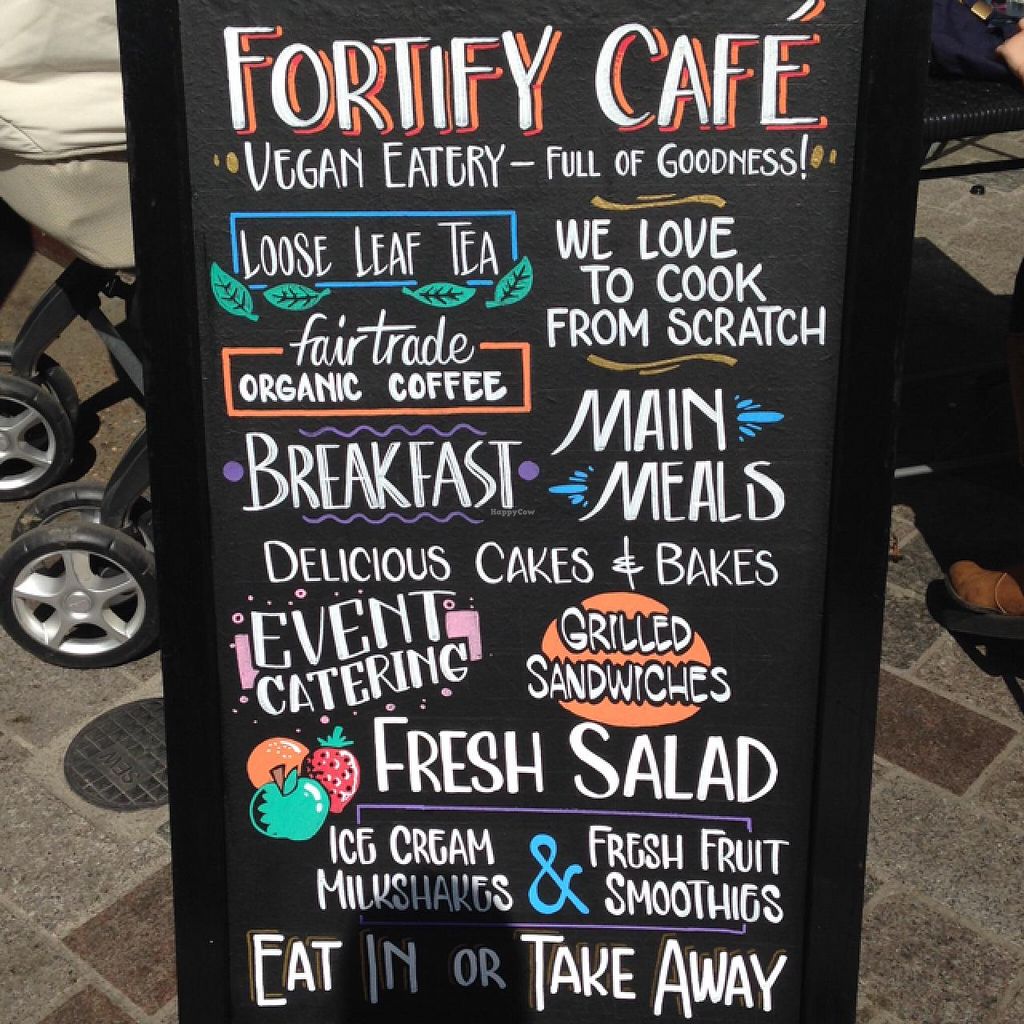 FORTIFY CAFÉ
VEGAN EATERY – FULL OF GOODNESS!
LOOSE LEAF TEA
fairtrade
ORGANIC COFFEE
BREAKFAST
WE LOVE
TO COOK
FROM SCRATCH
MAIN
MEALS
HappyCow
DELICIOUS CAKES & BAKES
EVENT
CATERING
GRILLED
SANDWICHES
FRESH SALAD
ICE CREAM
MILKSHAKES
&
FRESH FRUIT
SMOOTHIES
EAT IN OR TAKE AWAY